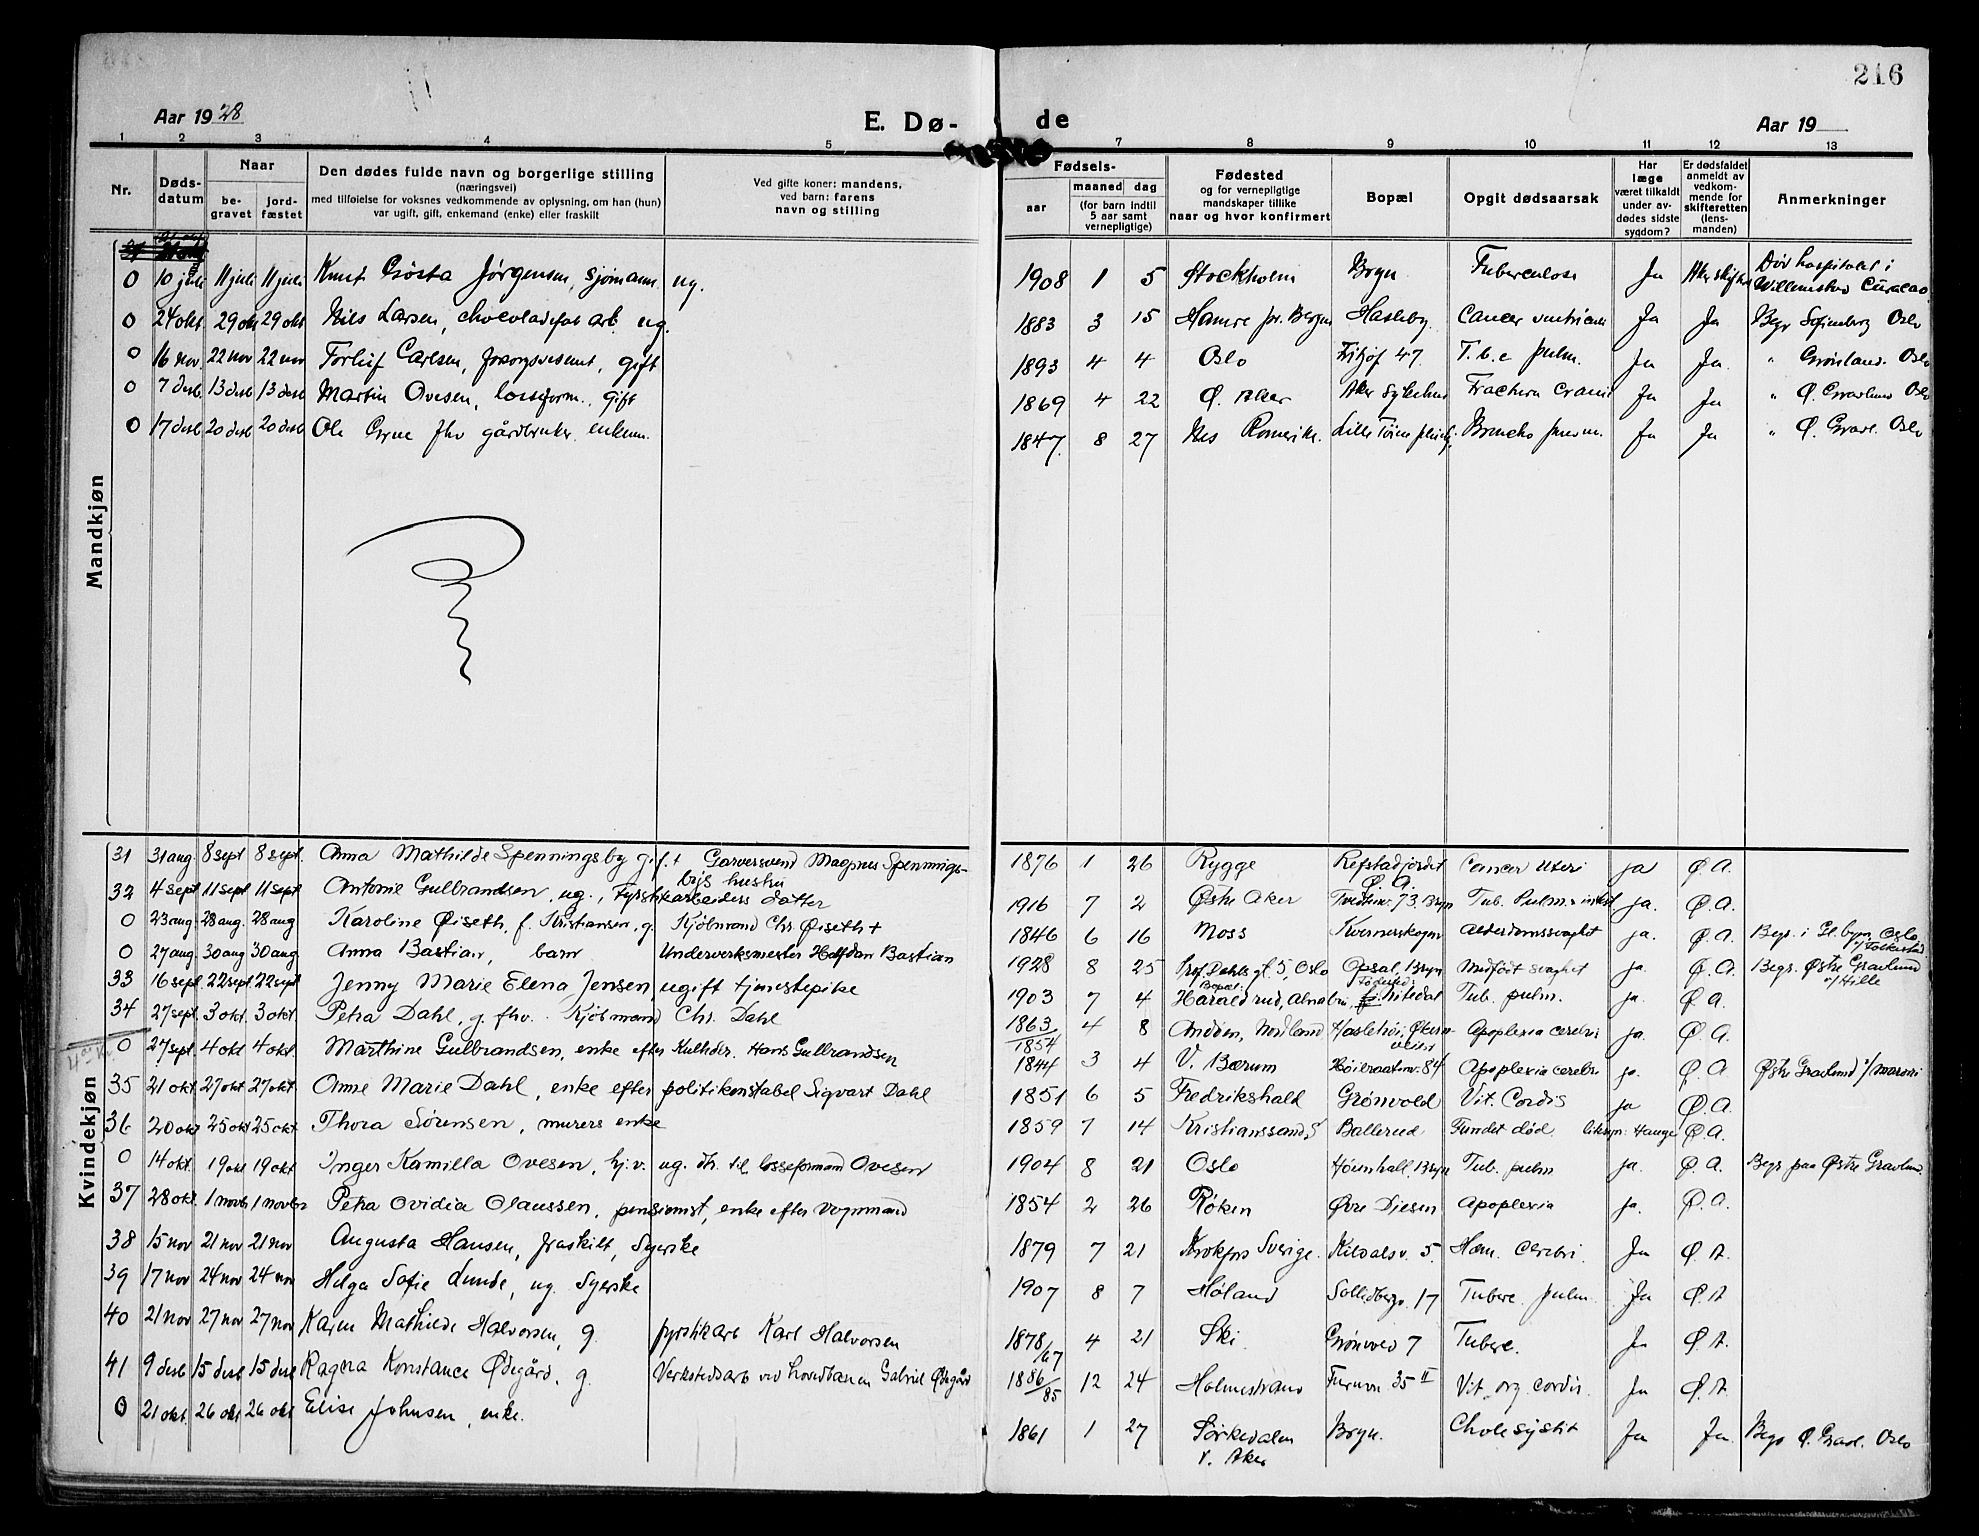 216
Aar 1928 E. Dø- de Aar 19
1 2 3 4 5 7 8 9 10 11 12 13
Nr. Døds-datum Naar be-gravet jord-fæstet Den dødes fulde navn og borgerlige stilling (næringsvei) med tilføielse for voksnes vedkommende av oplysning, om han (hun) var ugift, gift, enkemand (enke) eller fraskilt Ved gifte koner: mandens, ved barn: farens navn og stilling Fødsels- aar maaned dag (for barn indtil 5 aar samt vernepligtige) Fødested og for vernepligtige mandskaper tillike naar og hvor konfirmert Bopæl Opgit dødsaarsak Har læge været tilkaldt under av-dødes sidste sygdom? Er dødsfaldet anmeldt av vedkom-mende for skifteretten (lens-manden) Anmerkninger
Mandkjøn
0 10 juli 11 juli 11 juli Knut Gösta Jörgensen, sjömann ug. 1908 1 5 Stockholm Bryn Tuberculose Ja Aker skifter Döv hospitalet i Willemstad Curacao
0 24 okt 29 okt 29 okt Nils Larsen, chocoladefab arb. ug. 1883 3 15 Hamre pr. Bergen Hasleby Cancer ventriculi Ja Ja Begr Sofienberg Oslo
0 16 nov 22 nov 22 nov Torleif Carlsen, forsorgsvesent, gift 1893 4 4 Oslo Fritjof 47. T.b.c pulm. Ja Ja " Grönland. Oslo
0 7 desb 13 desb 13 desb Martin Ovesen, losseform., gift 1869 4 22 Ø. Aker Aker sykehus Fractura cranii Ja Ja " Ø. Gravlund Oslo
0 17 desb 20 desb 20 desb Ole fhv gårdbruker enkem. 1847. 8 27 Nes Romerike. Lille Töien Broncho pneum. Ja Ja " Ø. Gravl. Oslo
Kvindekjøn
31 31 aug 8 sept 8 sept. Anna Mathilde Spenningsby gift Garversvend Magnus Spennings-bys hustru 1876 1 26 Rygge Refstadjordet Ø.A. Cancer Uteri ja Ø.A.
32 4 sept 11 sept 11 sept Antonie Gulbrandsen, ug., Fyrstikarbeiders datter 1916 7 2 Østre Aker Tvetenv. 73. Bryn Tub. Pulm. ja. Ø.A.
0 23 aug. 28 aug. 28 aug Karoline Øiseth, f. Kristiansen, g. Kjöbmand Chr. Øiseth + 1846 6 16 Moss Kvernerskogen Alderdomssvaghet ja. Ø.A. Begr. i Gl. byen, Oslo
0 27 aug 30 aug 30 aug Anna Bastian, barn Underverksmester Halfdan Bastian 1928 8 25 Prof. Dahls gt. 5, Oslo Opsal, Bryn Medfödt svaghet ja. Ø.A. Begr. Østre Gravlund v/ Hille
33 16 sept. 22 sept. 22 sept Jenny Marie Elena Jensen, ugift tjenestepike 1903 7 4 Bopæl: Haraldrud, Alnabru. Fødested: Nitedal Tub. pulm. ja. Ø A.
34 27 sept. 3 okt. 3 okt. Petra Dahl, g. fhv. Kjöbmand Chr. Dahl 1863/1854 4 8 Andöen, Nordland Apoplexia cerebri ja. Ø A.
0 27 sept. 4 okt 4 okt. Marthine Gulbrandsen, enke efter Kulhdr. Hans Gulbrandsen 1844 3 4 V. Bærum Høieraatnv. 84 Apoplexia cerebri ja. Ø A Østre Gravlund
35 21 okt 27 okt 27 okt. Anne Marie Dahl, enke efter politikonstabel Sigvart Dahl 1851 6 5 Fredrikshald Grønvold Vit. Cordis ja Ø.A.
36 20 okt 25 okt 25 okt Thora Sörensen, murers enke 1859 7 14 Kristianssand S Ballerud Fundet død liksyn: Hauge Ø.A.
0 14 okt. 19 okt 19 okt Inger Kamilla Ovesen, hj.v. ug. dt. til losseformand Ovesen 1904 8 21 Oslo Höienhall, Bryn Tub. pulm ja. Ø. A. Begr paa Østre Gravlund.
37 28 okt. 1 novbr 1 novbr Petra Ovidia Olaussen, pensionist, enke efter Vognmand 1854 2 26 Röken Øvre Diesen Apoplexia ja. Ø.A.
38 15 nov 21 nov 21 nov Augusta Hansen, fraskilt, Syerske 1879 7 21 Krokfors Sverige. Kildalsv. 5. Hæm. cerebri. Ja Ø A.
39 17 nov 24 nov 24 nov Helga Sofie Lunde, ug. Syerske 1907 8 7 Høland Sollidbergv. 17 Tuberc. pulm. Ja Ø. A
40 21 nov 27 nov 27 nov Karen Mathilde Halvorsen, g. fyrstikarb Karl Halvorsen 1878/67 4 21 Ski Grønvold 7 Tuberc. Ja Ø A.
41 9 desb 15 desb 15 desb Ragna Konstance Ødegård, g. Verkstedsarb ved hovedbanen Gabriel Ødegård 1886/85 12 24 Holmestrand Furuvn 35 II Vit. org. cordis. Ja Ø. A.
0 21 okt. 26 okt 26 okt Elise Johnsen, enke. 1861 1 27 Sørkedalen V. Aker Bryn. Cholesystit Ja Ja Begr Ø. Gravl. Oslo